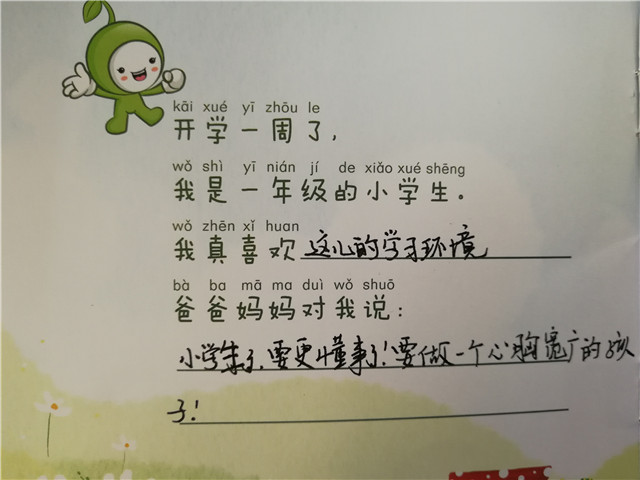 kāi xué yī zhōu le
开学一周了，
wǒ shì yī nián jí de xiǎo xué shēng
我是一年级的小学生。
wǒ zhēn xǐ huan
我真喜欢这儿的学习环境
bà ba mā ma duì wǒ shuō
爸爸妈妈对我说：
小学生了，要更懂事了！要做一个心胸宽广的孩
子！